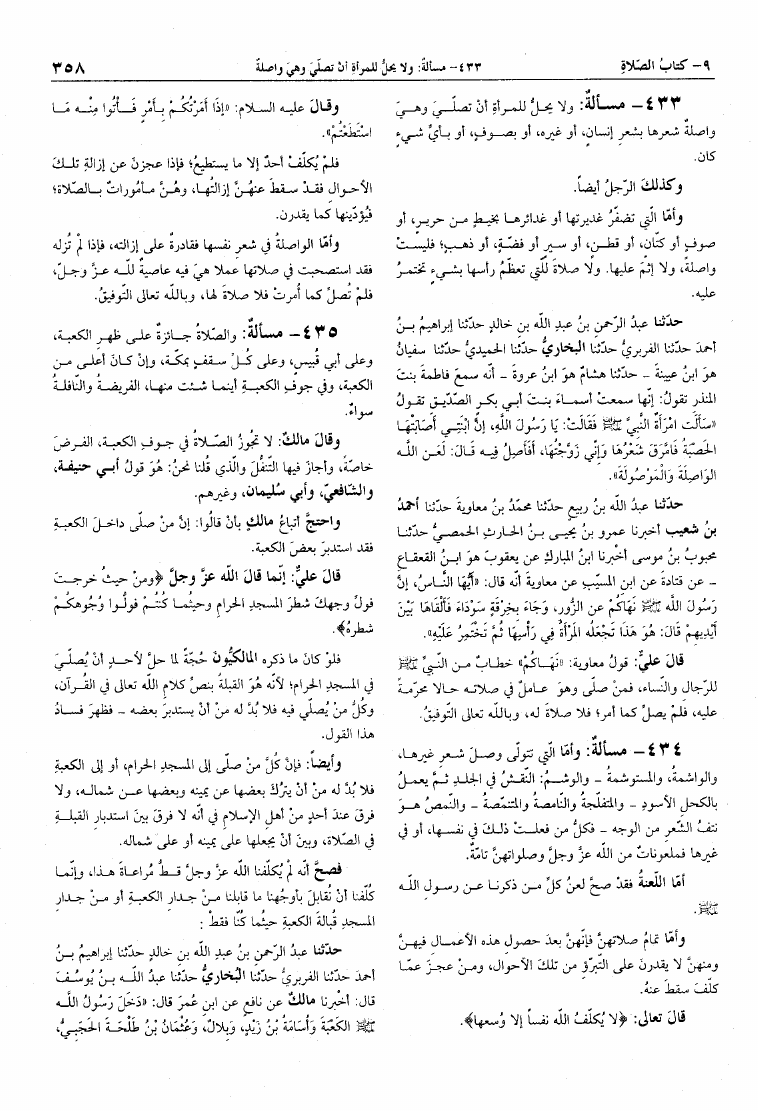 ٩- كتابُ الصّلاةِ ٤٣٣- مسألةٌ: ولا يحلُّ للمرأةِ أنْ تصلّيَ وهيَ واصلةٌ ٣٥٨
٤٣٣ - مسألةٌ: ولا يحلُّ للمرأةِ أنْ تصلّيَ وهيَ
واصلةٌ شعرها بشعرِ إنسانٍ، أو غيره، أو بصوفٍ، أو بأيِّ شيءٍ
كان.
وكذلكَ الرّجلُ أيضاً.
وأمّا الّتي تضفّرُ غديرتها أو غدائرها بخيطٍ من حريرٍ، أو
صوفٍ أو كتّانٍ، أو قطنٍ، أو سيرٍ أو فضّةٍ، أو ذهبٍ؛ فليستْ
واصلةً، ولا إثمَ عليها. ولا صلاةَ للّتي تعظّمُ رأسها بشيءٍ تختمرُ
عليه.
حدّثنا عبدُ الرّحمنِ بنُ عبدِ الله بنِ خالدٍ حدّثنا إبراهيمُ بنُ
أحمدَ حدّثنا الفربريُّ حدّثنا البخاريُّ حدّثنا الحميديُّ حدّثنا سفيانُ
هوَ ابنُ عيينةَ - حدّثنا هشامٌ هوَ ابنُ عروةَ - أنّه سمعَ فاطمةَ بنتَ
المنذرِ تقولُ: إنّها سمعتْ أسماءَ بنتَ أبي بكرٍ الصّدّيقِ تقولُ
«سَأَلَتِ امْرَأَةٌ النَّبيَّ ﷺ فَقَالَتْ: يَا رَسُولَ اللَّهِ، إنَّ ابْنَتِي أَصَابَتْهَا
الحَصْبَةُ فَامَّرَقَ شَعْرُهَا وَإِنّي زَوَّجْتُهَا، أَفَأَصِلُ فِيهِ قَالَ: لَعَنَ اللَّه
الوَاصِلَةَ وَالْمَوْصُولَةَ».
حدّثنا عبدُ الله بنُ ربيعٍ حدّثنا محمّدُ بنُ معاويةَ حدّثنا أحمدُ
بنُ شعيبٍ أخبرنا عمرو بنُ يحيى بنُ الحارثِ الحمصيُّ حدّثنا
محبوبُ بنُ موسى أخْبرنا ابنُ المباركِ عن يعقوبَ هوَ ابنُ القعقاعِ
- عن قتادةَ عن ابنِ المسيّبِ عن معاويةَ أنّه قال: «أَيُّهَا النَّاسُ، إنَّ
رَسُولَ اللَّه ﷺ نَهَاكُمْ عن الزُّور، وَجَاءَ بخِرْقَةٍ سَوْدَاءَ فَأَلْقَاهَا بَيْنَ
أَيْدِيهِمْ قَالَ: هُوَ هَذَا تَجْعَلُه المَرْأَةُ فِي رَأْسِهَا ثُمَّ تَخْتَمِرُ عَلَيْهِ».
قالَ عليٌّ: قولُ معاوية: «نَهَـاكُمْ» خطابٌ من النّبيِّ ﷺ
للرّجالِ والنّساء، فمنْ صلّى وهوَ عاملٌ في صلاتهِ حالا محرّمةً
عليه، فلمْ يصلِّ كما أمر؛ فلا صلاةَ له، وباللّه تعالى التّوفيقُ.
٤٣٤ - مسألةٌ: وأمّا الّتي تتولّى وصلَ شعرِ غيرها،
والواشمةُ، والمستوشمةُ - والوشمُ: النّقشُ في الجلدِ ثمَّ يعملُ
بالكحلِ الأسودِ - والمتفلّجةُ والنّامصةُ والمتنمّصةُ - والنّمصُ هوَ
نتفُ الشّعرِ من الوجهِ - فكلُّ من فعلتْ ذلكَ في نفسها، أو في
غيرها فملعوناتٌ من اللّه عزَّ وجلَّ وصلواتهنَّ تامّةٌ.
أمّا اللّعنةُ فقدْ صحَّ لعنُ كلِّ من ذكرنا عن رسولِ اللّه
ﷺ.
وأمّا تمامُ صلاتهنَّ فإنّهنَّ بعدَ حصولِ هذه الأعمالِ فيهنَّ
ومنهنَّ لا يقدرنَ على التّبرّؤِ من تلكَ الأحوالِ، ومنْ عجزَ عمّا
كلّفَ سقطَ عنهُ.
قالَ تعالى: ﴿لا يُكلّفُ اللّه نفساً إلا وُسعها﴾.
وقالَ عليه السلام: «إذَا أَمَرْتُكُمْ بِأَمْرٍ فَأْتُوا مِنْه مَا
اسْتَطَعْتُمْ».
فلمْ يُكلّفْ أحدٌ إلا ما يستطيعُ؛ فإذا عجزنَ عن إزالةِ تلكَ
الأحوالِ فقدْ سقطَ عنهُنَّ إزالتُها، وهُنَّ مأمُوراتٌ بالصّلاة؛
فيُؤدّينها كما يقدرن.
وأمّا الواصلةُ في شعرِ نفسها فقادرةٌ على إزالته، فإذا لمْ تُزله
فقد استصحبت في صلاتها عملا هيَ فيه عاصيةٌ للّه عزَّ وجلَّ،
فلمْ تُصلِّ كما أُمرتْ فلا صلاةَ لها، وباللّه تعالى التّوفيقُ.
٤٣٥ - مسألةٌ: والصّلاةُ جائزةٌ على ظهرِ الكعبة،
وعلى أبي قُبيسٍ، وعلى كُلِّ سقفٍ بمكّة، وإنْ كانَ أعلى من
الكعبة، وفي جوفِ الكعبةِ أينما شئت منها، الفريضةُ والنّافلةُ
سواءٌ.
وقالَ مالكٌ: لا تجُوزُ الصّلاةُ في جوفِ الكعبة، الفرضَ
خاصّةً، وأجازَ فيها التّنفّلَ والّذي قُلنا نحنُ: هُوَ قولُ أبي حنيفة،
والشّافعيِّ، وأبي سليمان، وغيرهم.
واحتجَّ أتباعُ مالكٍ بأنْ قالُوا: إنَّ منْ صلّى داخلَ الكعبةِ
فقد استدبرَ بعضَ الكعبة.
قالَ عليٌّ: إنّما قالَ اللّه عزَّ وجلَّ ﴿ومنْ حيثُ خرجت
فولِّ وجهكَ شطرَ المسجدِ الحرامِ وحيثُما كُنتُمْ فولُّوا وُجُوهكُمْ
شطرهُ﴾.
فلوْ كانَ ما ذكره المالكيُّون حُجّةً لما حلَّ لأحدٍ أنْ يُصلّيَ
في المسجدِ الحرامِ؛ لأنّه هُوَ القبلةُ بنصِّ كلامِ اللّه تعالى في القُرآن،
وكُلُّ منْ يُصلّي فيه فلا بُدَّ له منْ أنْ يستدبرَ بعضه - فظهرَ فسادُ
هذا القول.
وأيضاً: فإنَّ كُلَّ منْ صلّى إلى المسجدِ الحرام، أو إلى الكعبةِ
فلا بُدَّ له منْ أنْ يتركَ بعضها عن يمينه وبعضها عن شماله، ولا
فرقَ عندَ أحدٍ منْ أهلِ الإسلامِ في أنّه لا فرقَ بينَ استدبارِ القبلةِ
في الصّلاة، وبينَ أنْ يجعلها على يمينه أو على شماله.
فصحَّ أنّه لمْ يُكلّفنا اللّه عزَّ وجلَّ قطُّ مُراعاةَ هذا، وإنّما
كُلّفنا أنْ نُقابلَ بأوجُهنا ما قابلنا منْ جدارِ الكعبةِ أو منْ جدارِ
المسجدِ قُبالةَ الكعبةِ حيثُما كُنّا فقطْ :
حدّثنا عبدُ الرّحمنِ بنُ عبدِ اللّه بنِ خالدٍ حدّثنا إبراهيمُ بنُ
أحمدَ حدّثنا الفربريُّ حدّثنا البُخاريُّ حدّثنا عبدُ اللّه بنُ يوسُفَ
قال: أخْبرنا مالكٌ عن نافعٍ عن ابنِ عُمرَ قال: «دَخَلَ رَسُولُ اللَّه
ﷺ الكَعْبَةَ وَأُسَامَةُ بْنُ زَيْدٍ، وَبِلالٌ، وَعُثْمَانُ بْنُ طَلْحَةَ الحَجَبيُّ،